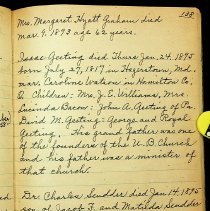 108
Mrs. Margaret Hyatt Graham died
mar. 9, 1893 age 62 years.
Isaac Geeting died Thurs. Jan. 24, 1895
born July 27, 1817 in Hagerstown, Md.
mar. Caroline Watson in Hamilton Co,
O. Children: Mrs. J. E. Williams, Mrs.
Lucinda Bacon: John A. Geeting of Pa.
David M. Geeting - George and Royal
Geeting. His grandfather was one
of the founders of the U. B. Church
and his father was a minister of
that church.
Dr. Charles Scudder died Jan. 14, 1895
son of Jacob F. and Matilda Scudder